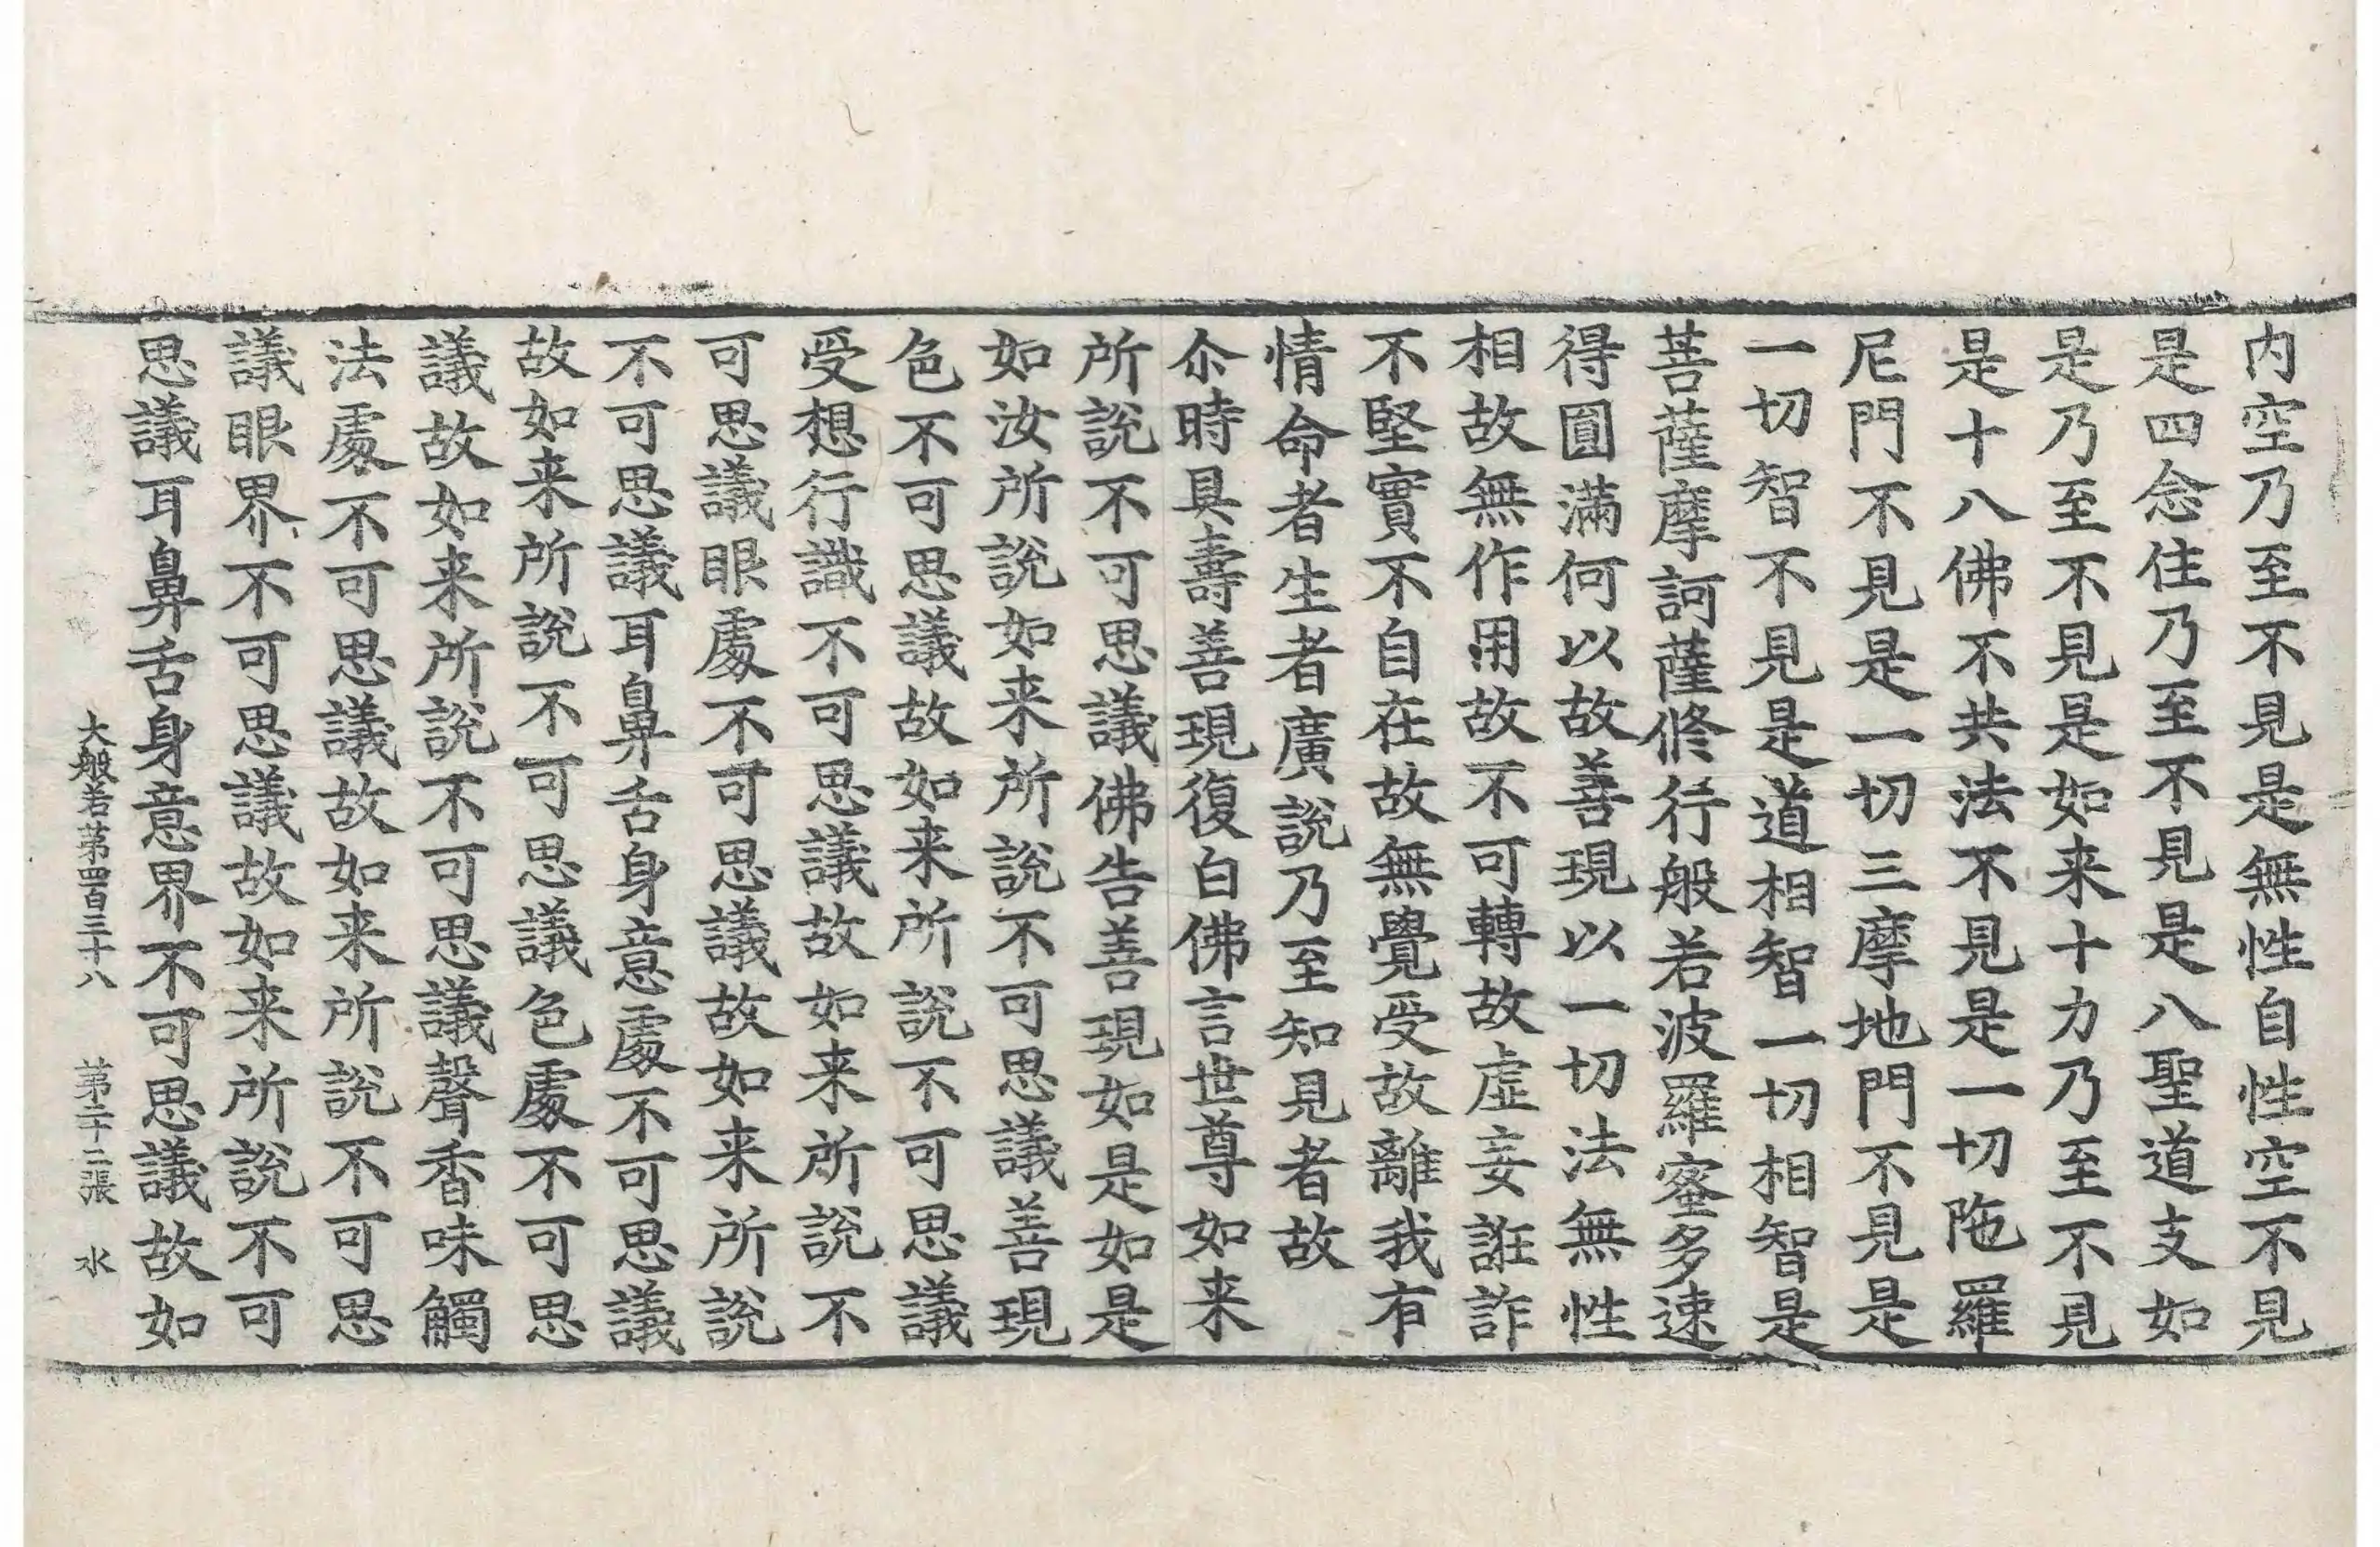 内空乃至不見是無性自性空不見
是四念住乃至不見是八聖道支如
是乃至不見是如来十力乃至不見
是十八佛不共法不見是一切陁羅
尼門不見是一切三摩地門不見是
一切智不見是道相智一切相智是
菩薩摩訶薩修行般若波羅蜜多速
得圓滿何以故善現以一切法無性
相故無作用故不可轉故虛妄誑詐
不堅實不自在故無覺受故離我有
情命者生者廣說乃至知見者故
尒時具壽善現復白佛言世尊如来
所說不可思議佛告善現如是如是
如汝所說如来所說不可思議善現
色不可思議故如来所說不可思議
受想行識不可思議故如来所說不
可思議眼處不可思議故如来所說
不可思議耳鼻舌身意處不可思議
故如来所說不可思議色處不可思
議故如来所說不可思議聲香味觸
法處不可思議故如来所說不可思
議眼界不可思議故如来所說不可
思議耳鼻舌身意界不可思議故如
大般若第四百三十八 第二十二張 水